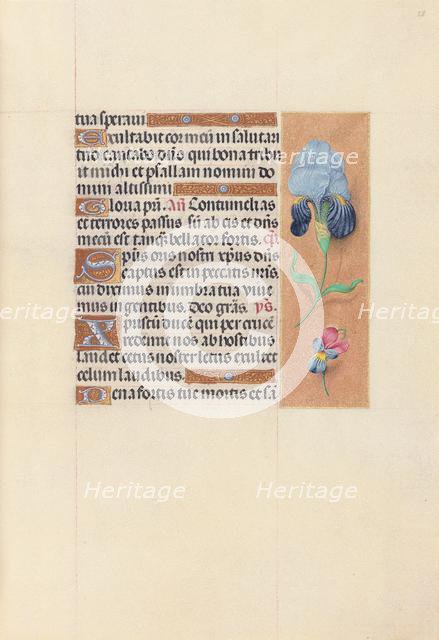 tua speravi
Exultabit cor meū in salutari
tuo cantabo dño qui bona tribu
it michi et psallam nomini do
mini altissimi
Gloria při. Añ Contumelias
et terrores passus sũ ab eis et dñs
mecū est tanq̃ bellator fortis.
Spūs oris nostri xp̄us dñs
captus est in peccatis nr̄is.
cui diximus in umbra tua vive
mus in gentibus. deo grās.
X
redemit nos ab hostibus
Laudet cetus noster letus et
celum laudibus.
Pena fortis tue mortis et
Heritage
Heritage
Heritage
Heritage
Heritage
Heritage